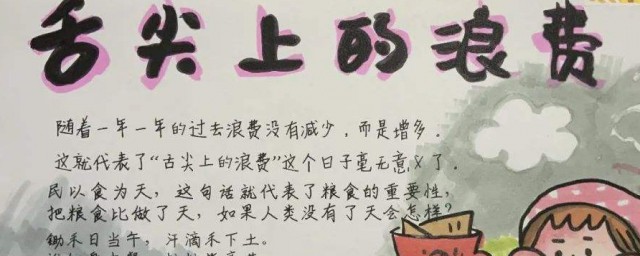 舌尖上的浪费
随着一年一年的过去浪费没有减少，而是增多。
这就代表了“舌尖上的浪费”这个日子毫无意义了。
民以食为天，这句话就代表了粮食的重要性，
把粮食比做了天，如果人类没有了天会怎样？
锄禾日当午，汗滴禾下土。